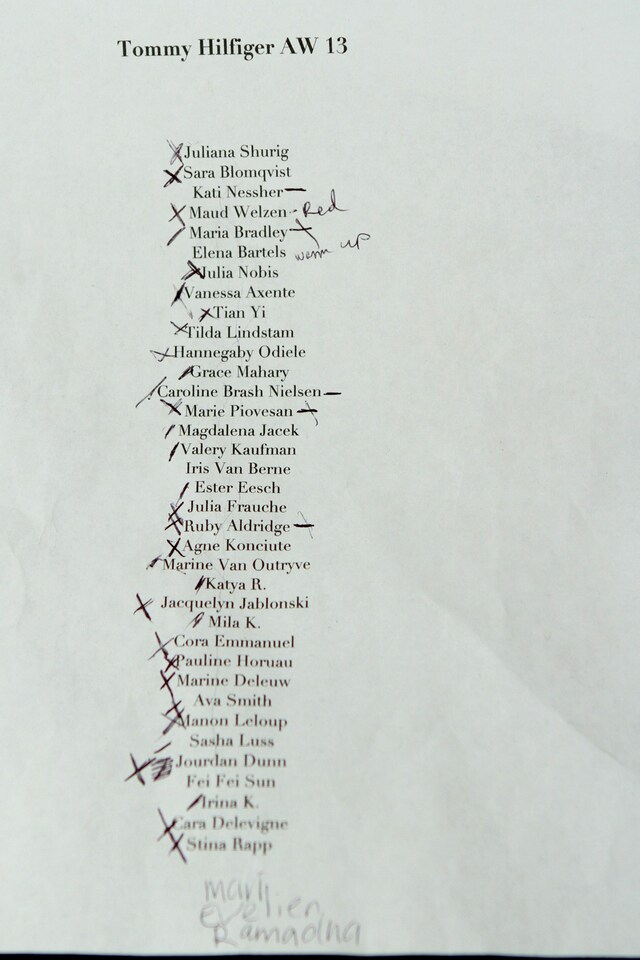 Tommy Hilfiger AW 13
Juliana Shurig
Sara Blomqvist
Kati Nessher
Maud Welzen - Red
Maria Bradley
Elena Bartels warm up
Julia Nobis
Vanessa Axente
Tian Yi
Tilda Lindstam
Hannegaby Odiele
Grace Mahary
Caroline Brash Nielsen
Marie Piovesan
Magdalena Jacek
Valery Kaufman
Iris Van Berne
Ester Eesch
Julia Frauche
Ruby Aldridge
Agne Konciute
Marine Van Outryve
Katya R.
Jacquelyn Jablonski
Mila K.
Cora Emmanuel
Pauline Horuau
Marine Deleuw
Ava Smith
Manon Leloup
Sasha Luss
Jourdan Dunn
Fei Fei Sun
Irina K.
Cara Delevigne
Stina Rapp